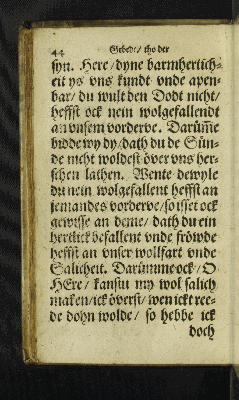 44 Gebede / tho der
syn. Here / dyne barmhertich⸗
eit ys vns kundt vnde apen⸗
bar / du wult den Dodt nicht /
heffst ock nein wolgefallendt
an vnsem vorderve. Darüm̃e
bidde wy dy / dath du de Sün⸗
de nicht woldest över vns her⸗
schen lathen. Wente dewyle
du nein wolgefallent heffst an
jemandes vorderve / so isset ock
gewisse an deme / dath du ein
hertlick befallent vnde fröwde
heffst an vnser wolfart vnde
Salicheit. Darümme ock / O
HEre / kanstu my wol salich
maken / ick överst / wen ickt ree⸗
de dohn wolde / so hebbe ick
doch